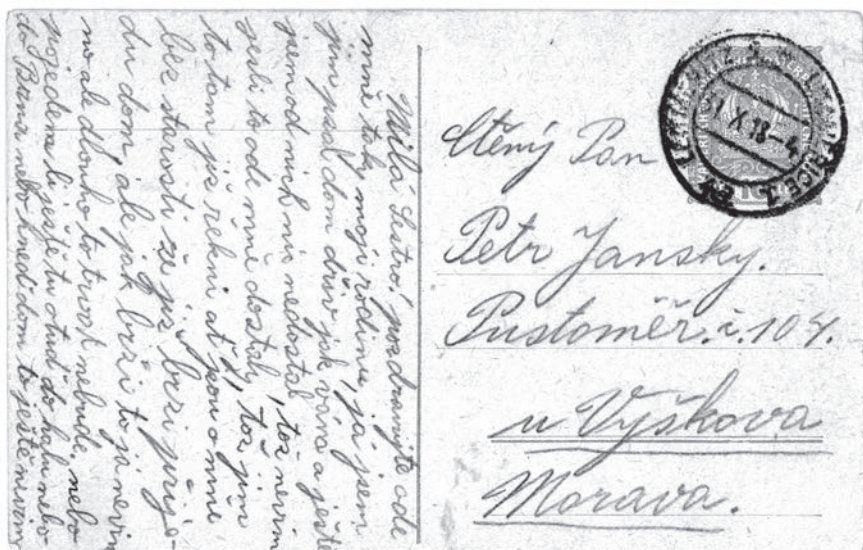 Milá Sestro! pozdravujte ode
mně taky moji rodinu, já jsem
jim psal dom dřív jak vám a ještě
jsem od nich nic nedostal, tož nevim
jesli to ode mně dostaly, tož jim
to tam jýž řekni ať jsou o mně
bez starosti že jýž brzi přije-
du dom, ale jak brzi to já nevim
no ale dlouho to trvat nebude, nebo
pojedem li ještě tu otuď do halu nebo
do Brna nebo hneď dom to ještě nevim
Ctěný Pan
Petr Jansky.
Pustoměř. č. 104.
u Výškova
Morava.
X 18-4